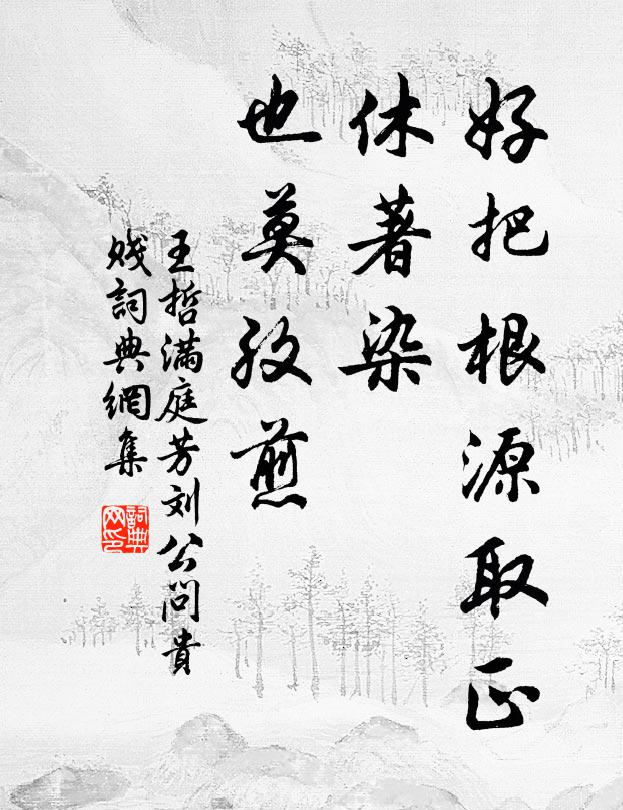 好把根源取正
休著染
也莫孜煎
王哲满庭芳刘公問貴
贱詞典網集
詞典
网印